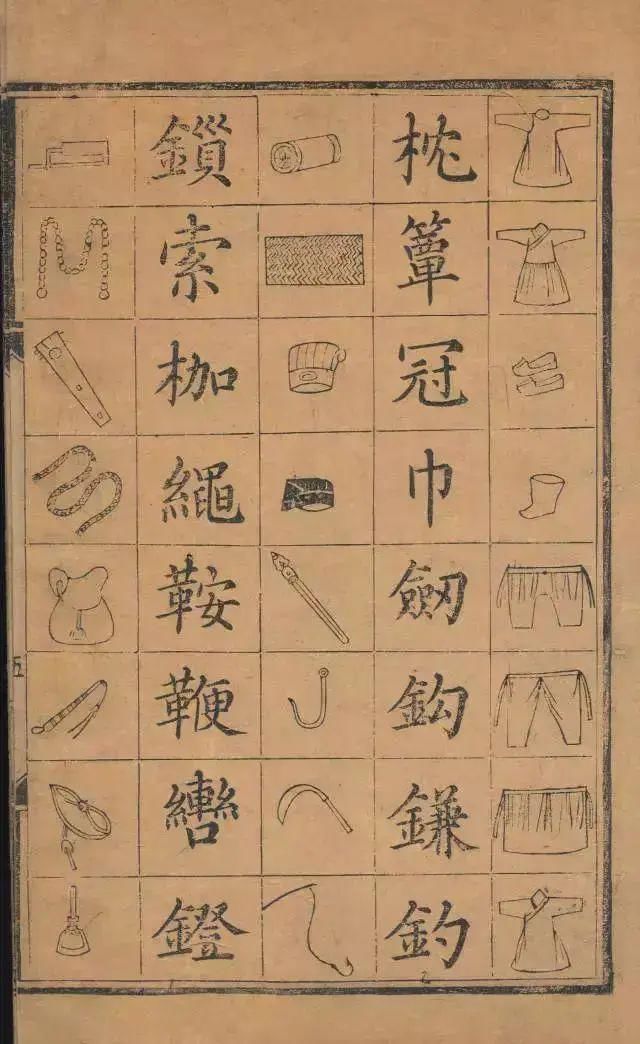 枕
簟
冠
巾
劒
鈎
鎌
釣
鎻
索
枷
繩
鞍
鞭
轡
鐙
五